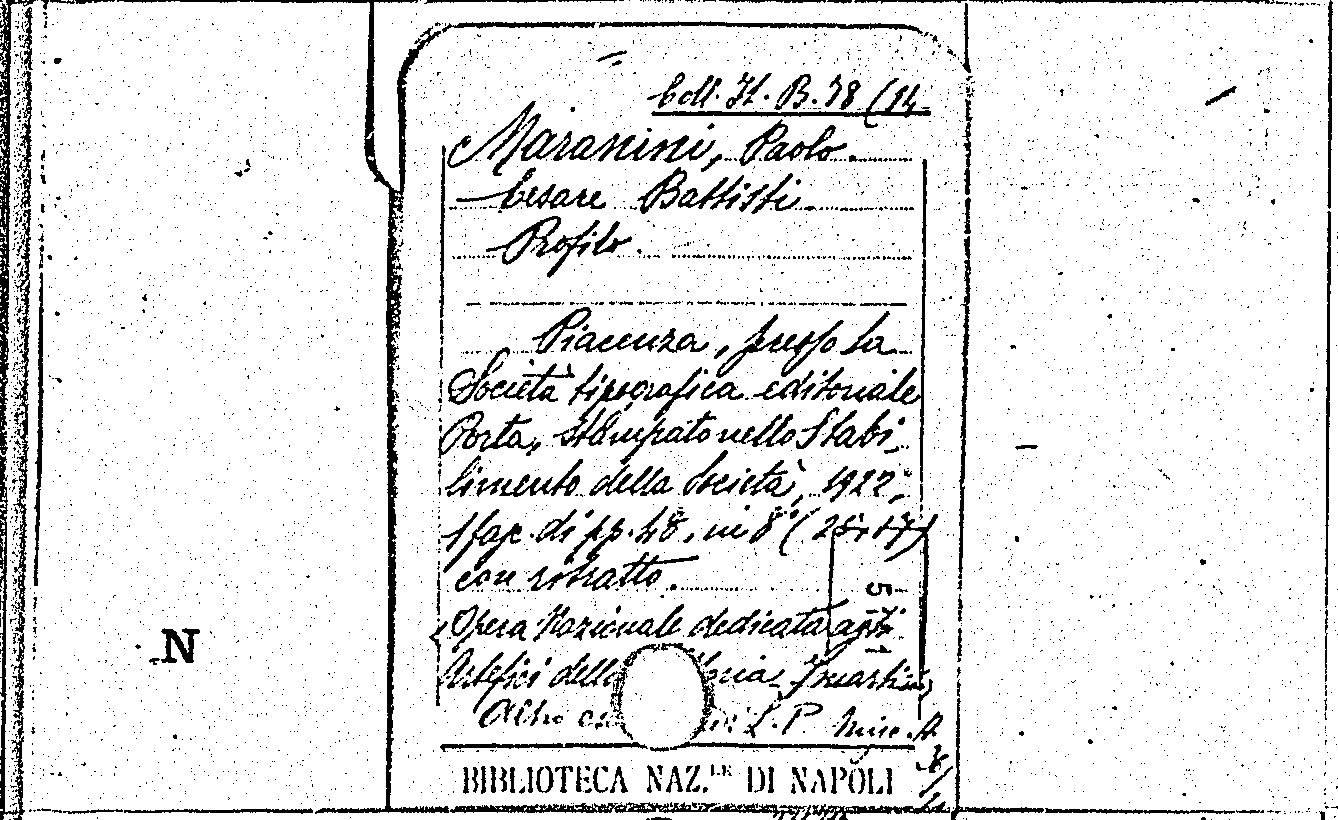 Coll. It. B. 38 (14
Maranini, Paolo.
Cesare Battisti.
Profilo.
Piacenza, presso la
Società tipografica editoriale
Porta, Stampato nello Stabi-
limento della Società, 1922;
1 fasc. di pp. 48, in 8° (25x17)
con ritratto.
Opera Nazionale dedicata agli
Artefici della I martiri
Altro L. P. Misc. A
5
N
BIBLIOTECA NAZ.LE DI NAPOLI